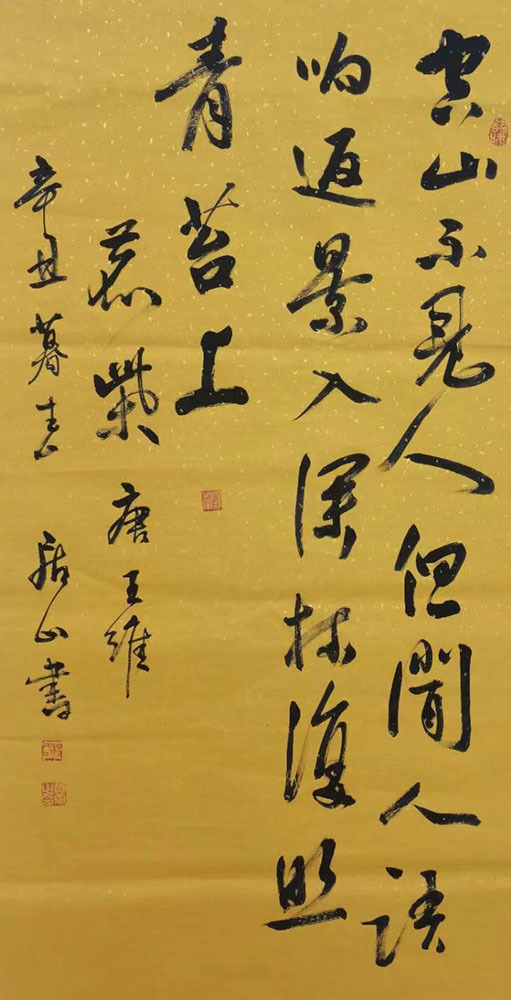 空山不見人但聞人語
响返景入深林復照
青苔上
鹿柴 唐王維
辛丑暮春 居山書